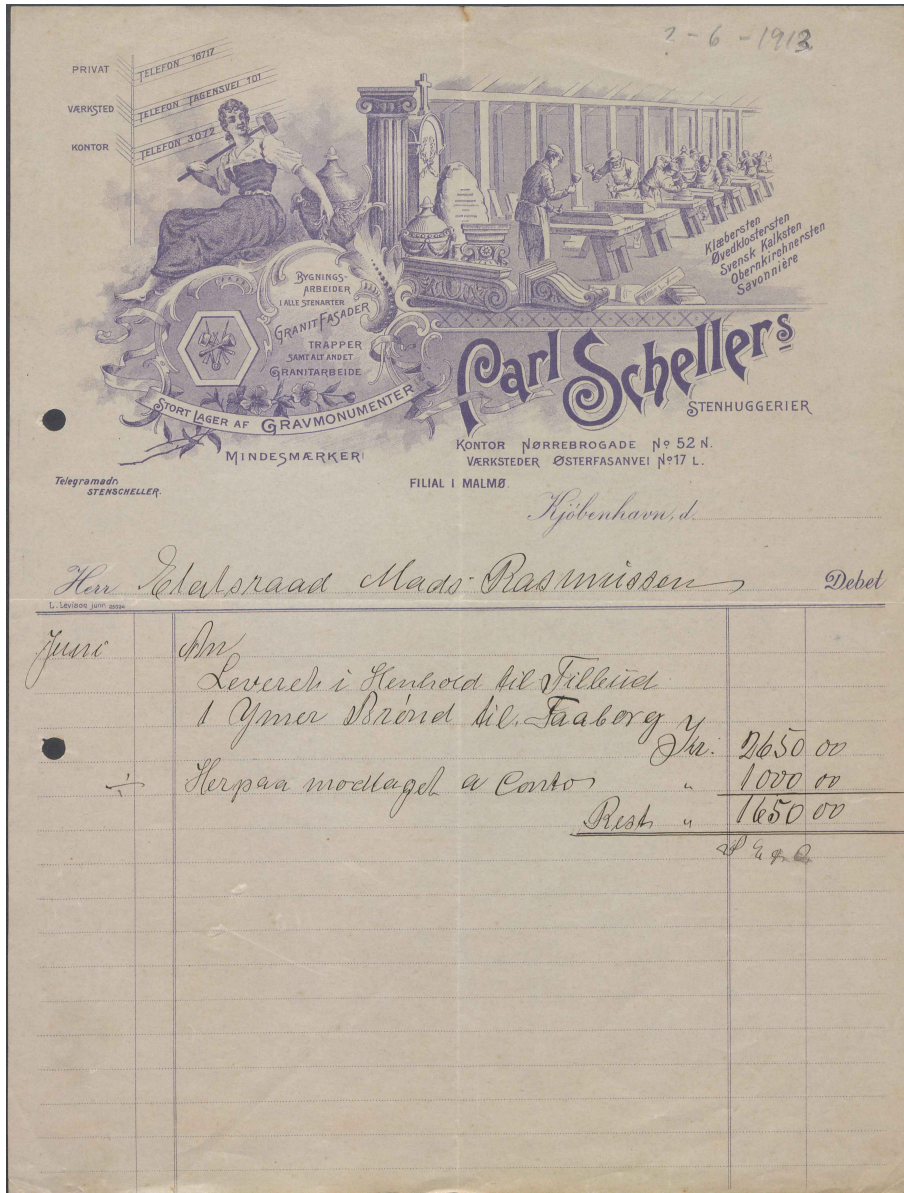 ? - 6 - 1913
PRIVAT
TELEFON 16717
VÆRKSTED
TELEFON TAGENSVEI 101
KONTOR
TELEFON 3072
Klæbersten
Øvedklostersten
Svensk Kalksten
Obernkirchnersten
Savonnière
BYGNINGS-
ARBEIDER
I ALLE STENARTER
GRANIT FASADER
TRAPPER
SAMT ALT ANDET
GRANITARBEIDE
STORT LAGER AF GRAVMONUMENTER
MINDESMÆRKER
Carl Schellers
STENHUGGERIER
KONTOR NØRREBROGADE No 52 N.
VÆRKSTEDER ØSTERFASANVEI No 17 L.
Telegramadr.
STENSCHELLER.
FILIAL I MALMØ.
Kjöbenhavn, d.
Herr Etatsraad Mads Rasmussen Debet
L. Levison junr
Juni An
Leveret i Henhold til Tilbud
1 Ymer Brönd til Faaborg
Kr. 2650 00
÷ Herpaa modtaget a Conto " 1000 00
Rest " 1650 00